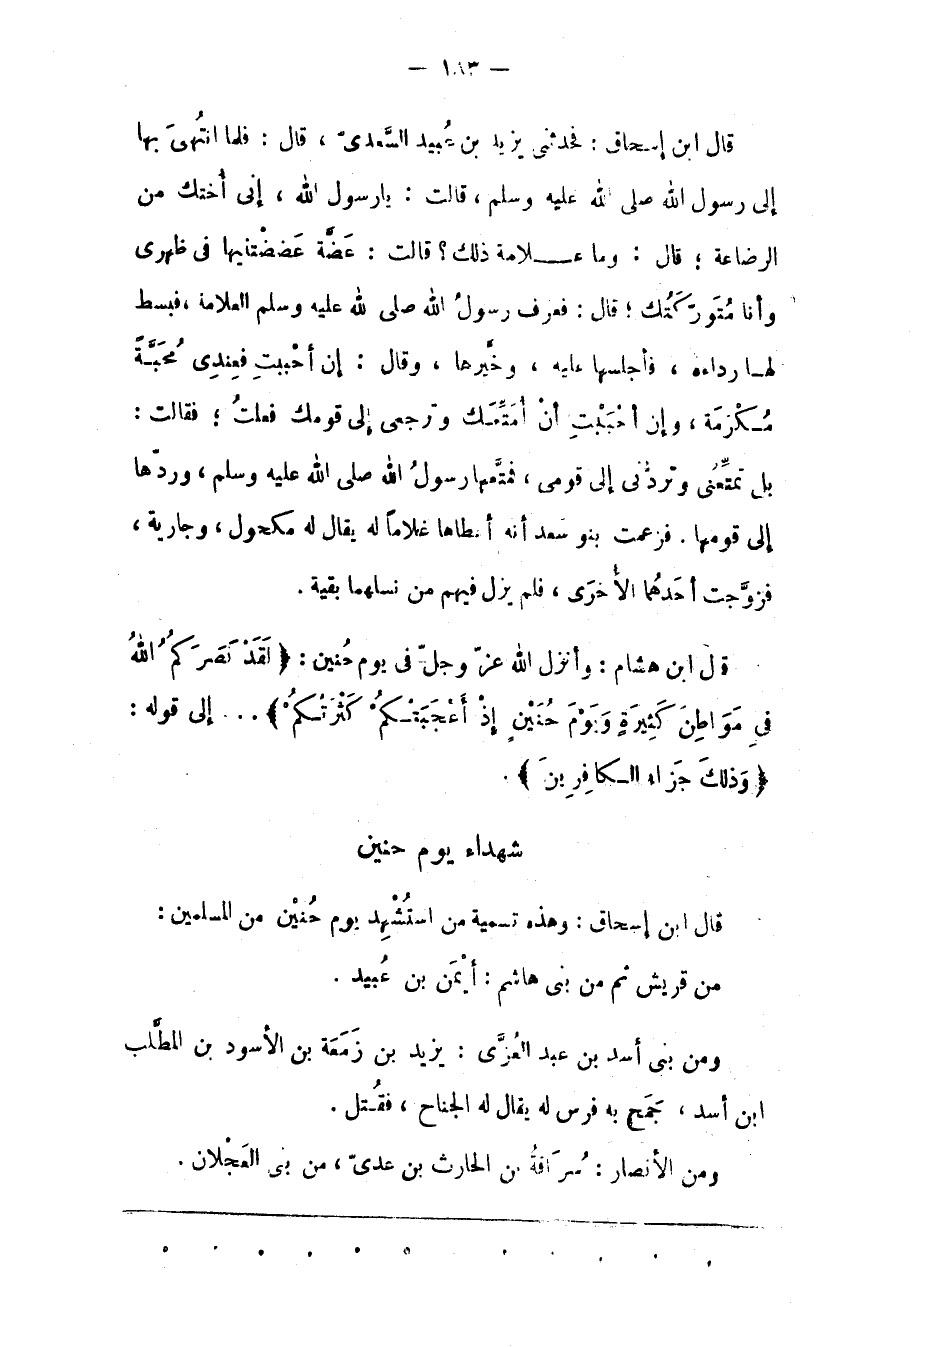 — ١٨٣ —
قال ابن إسحاق : فحدثنى يزيد بن عُبيد السَّعدىّ ، قال : فلما انتُهىَ بها
إلى رسول الله صلى الله عليه وسلم ، قالت : يارسول الله ، إنى أُختك من
الرضاعة ؛ قال : وما عـــلامة ذلك ؟ قالت : عَضَّة عَضضْتنيها فى ظهرى
وأنا مُتَورّكَتُك ؛ قال : فعرف رسولُ الله صلى لله عليه وسلم العلامة ، فبسط
لهـا رداءه ، فأجلسها عليه ، وخيَّرها ، وقال : إن أحْببتِ فعِندِى مُحَبَّـةً
مُـكْرَمَة ، وإن أحْبَبْتِ أنْ أُمَتِّعَـك وترجعى إلى قومك فعلتُ ؛ فقالت :
بل تمتِّعُنى وتردُّنى إلى قومى ، فمتَّعها رسولُ الله صلى الله عليه وسلم ، وردّها
إلى قومها . فزعمت بنو سَعد أنه أعطاها غلاماً له يقال له مكحول ، وجارية ،
فزوَّجت أحَدهُما الأُخرَى ، فلم يزل فيهم من نسلهما بقية .
قال ابن هشام : وأنزل الله عزّ وجلّ فى يوم حُنين : ﴿ لَقَدْ نَصَرَكُمُ اللهُ
فى مَوَاطِنَ كَثِيرَةٍ وَيَوْمَ حُنَيْنٍ إذْ أَعْجَبَتْـكُمْ كَثْرَتُـكُمْ ﴾ ... إلى قوله :
﴿ وَذلكَ جَزَاء الـكافِرِينَ ﴾ .
شهداء يوم حنين
قال ابن إسحاق : وهذه تسمية من استُشْهِد يوم حُنيْن من المسلمين :
من قريش ثم من بنى هاشم : أيْمَن بن عُبيد .
ومن بنى أسد بن عبد العُزَّى : يزيد بن زَمَعَة بن الأسود بن المطَّلب
ابن أسد ، جَمَح به فرس له يقال له الجناح ، فقُتل .
ومن الأنصار : سُرَاقةُ بن الحارث بن عدىّ ، من بنى العَجْلان .